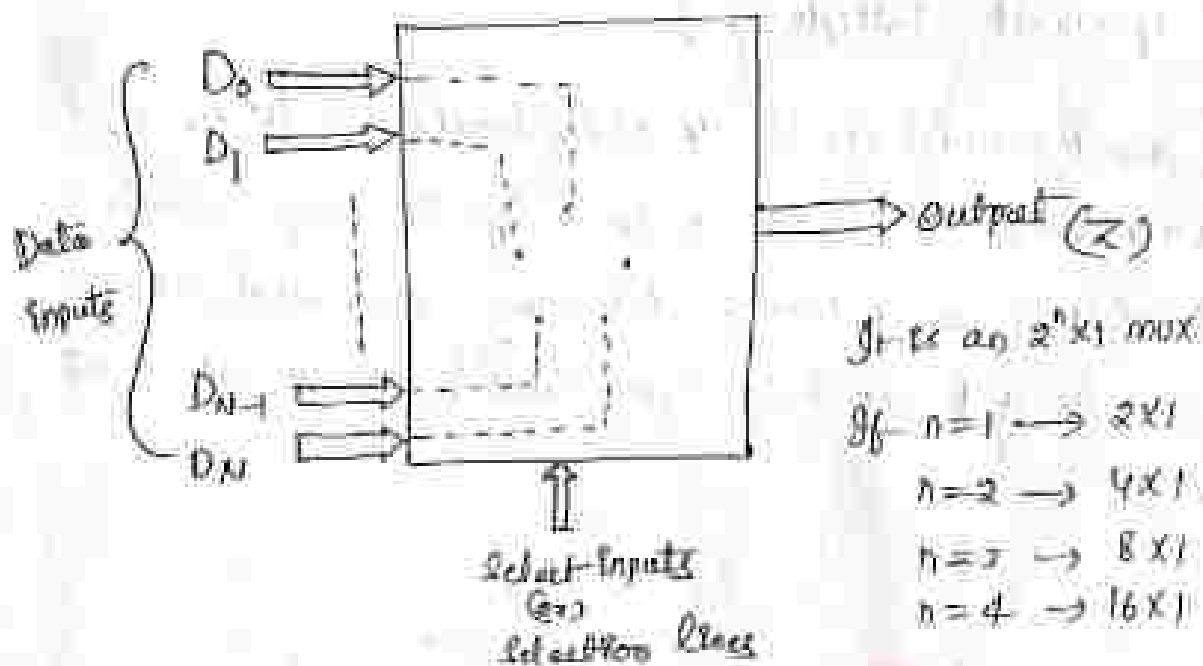 D0
D1
Data
Inputs
DN-1
DN
Output (Z)
It is an 2^n x1 mux
If n=1 → 2x1
n=2 → 4x1
n=3 → 8x1
n=4 → 16x1
Select Inputs
(or)
Selection lines